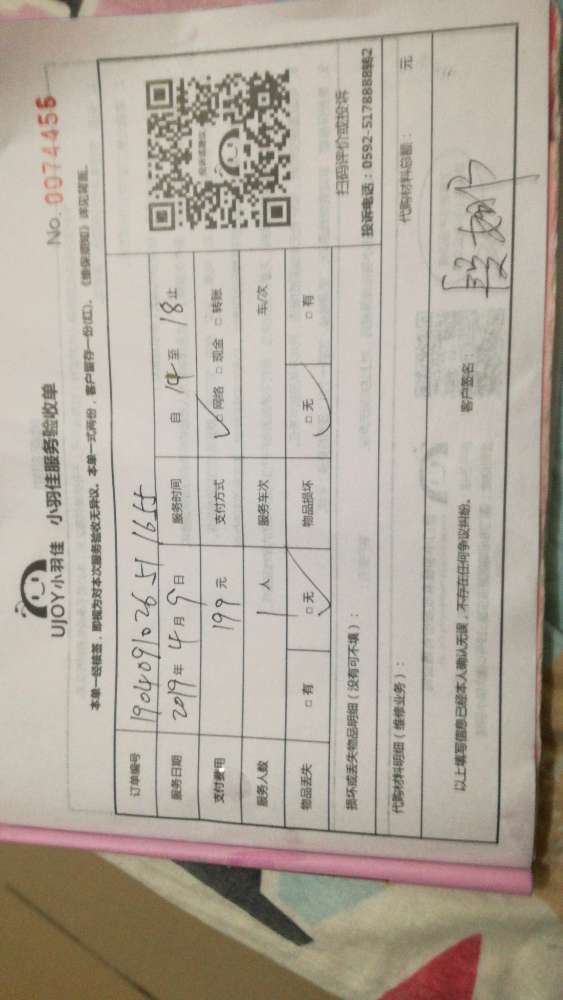 UJOY小羽佳 小羽佳服务验收单
No. 0074455
本单一经核签,即视为对本次服务验收无异议。本单一式两份,客户留存一份(红)。《维保须知》详见背面。
订单编号 190409102651
服务日期 2019年4月9日 服务时间 自14至18止
支付费用 199元 支付方式 ☑网络 □现金 □转账
服务人数 1人 服务车次 车/次
物品丢失 □有 ☑无 物品损坏 ☑无 □有
投诉或建议
扫码评价或投诉
投诉电话:0592-5178888转2
损坏或丢失物品明细(没有可不填):
代购材料明细(维修业务): 代购材料总额: 元
以上填写信息已经本人确认无误,不存在任何争议纠纷。 客户签名: